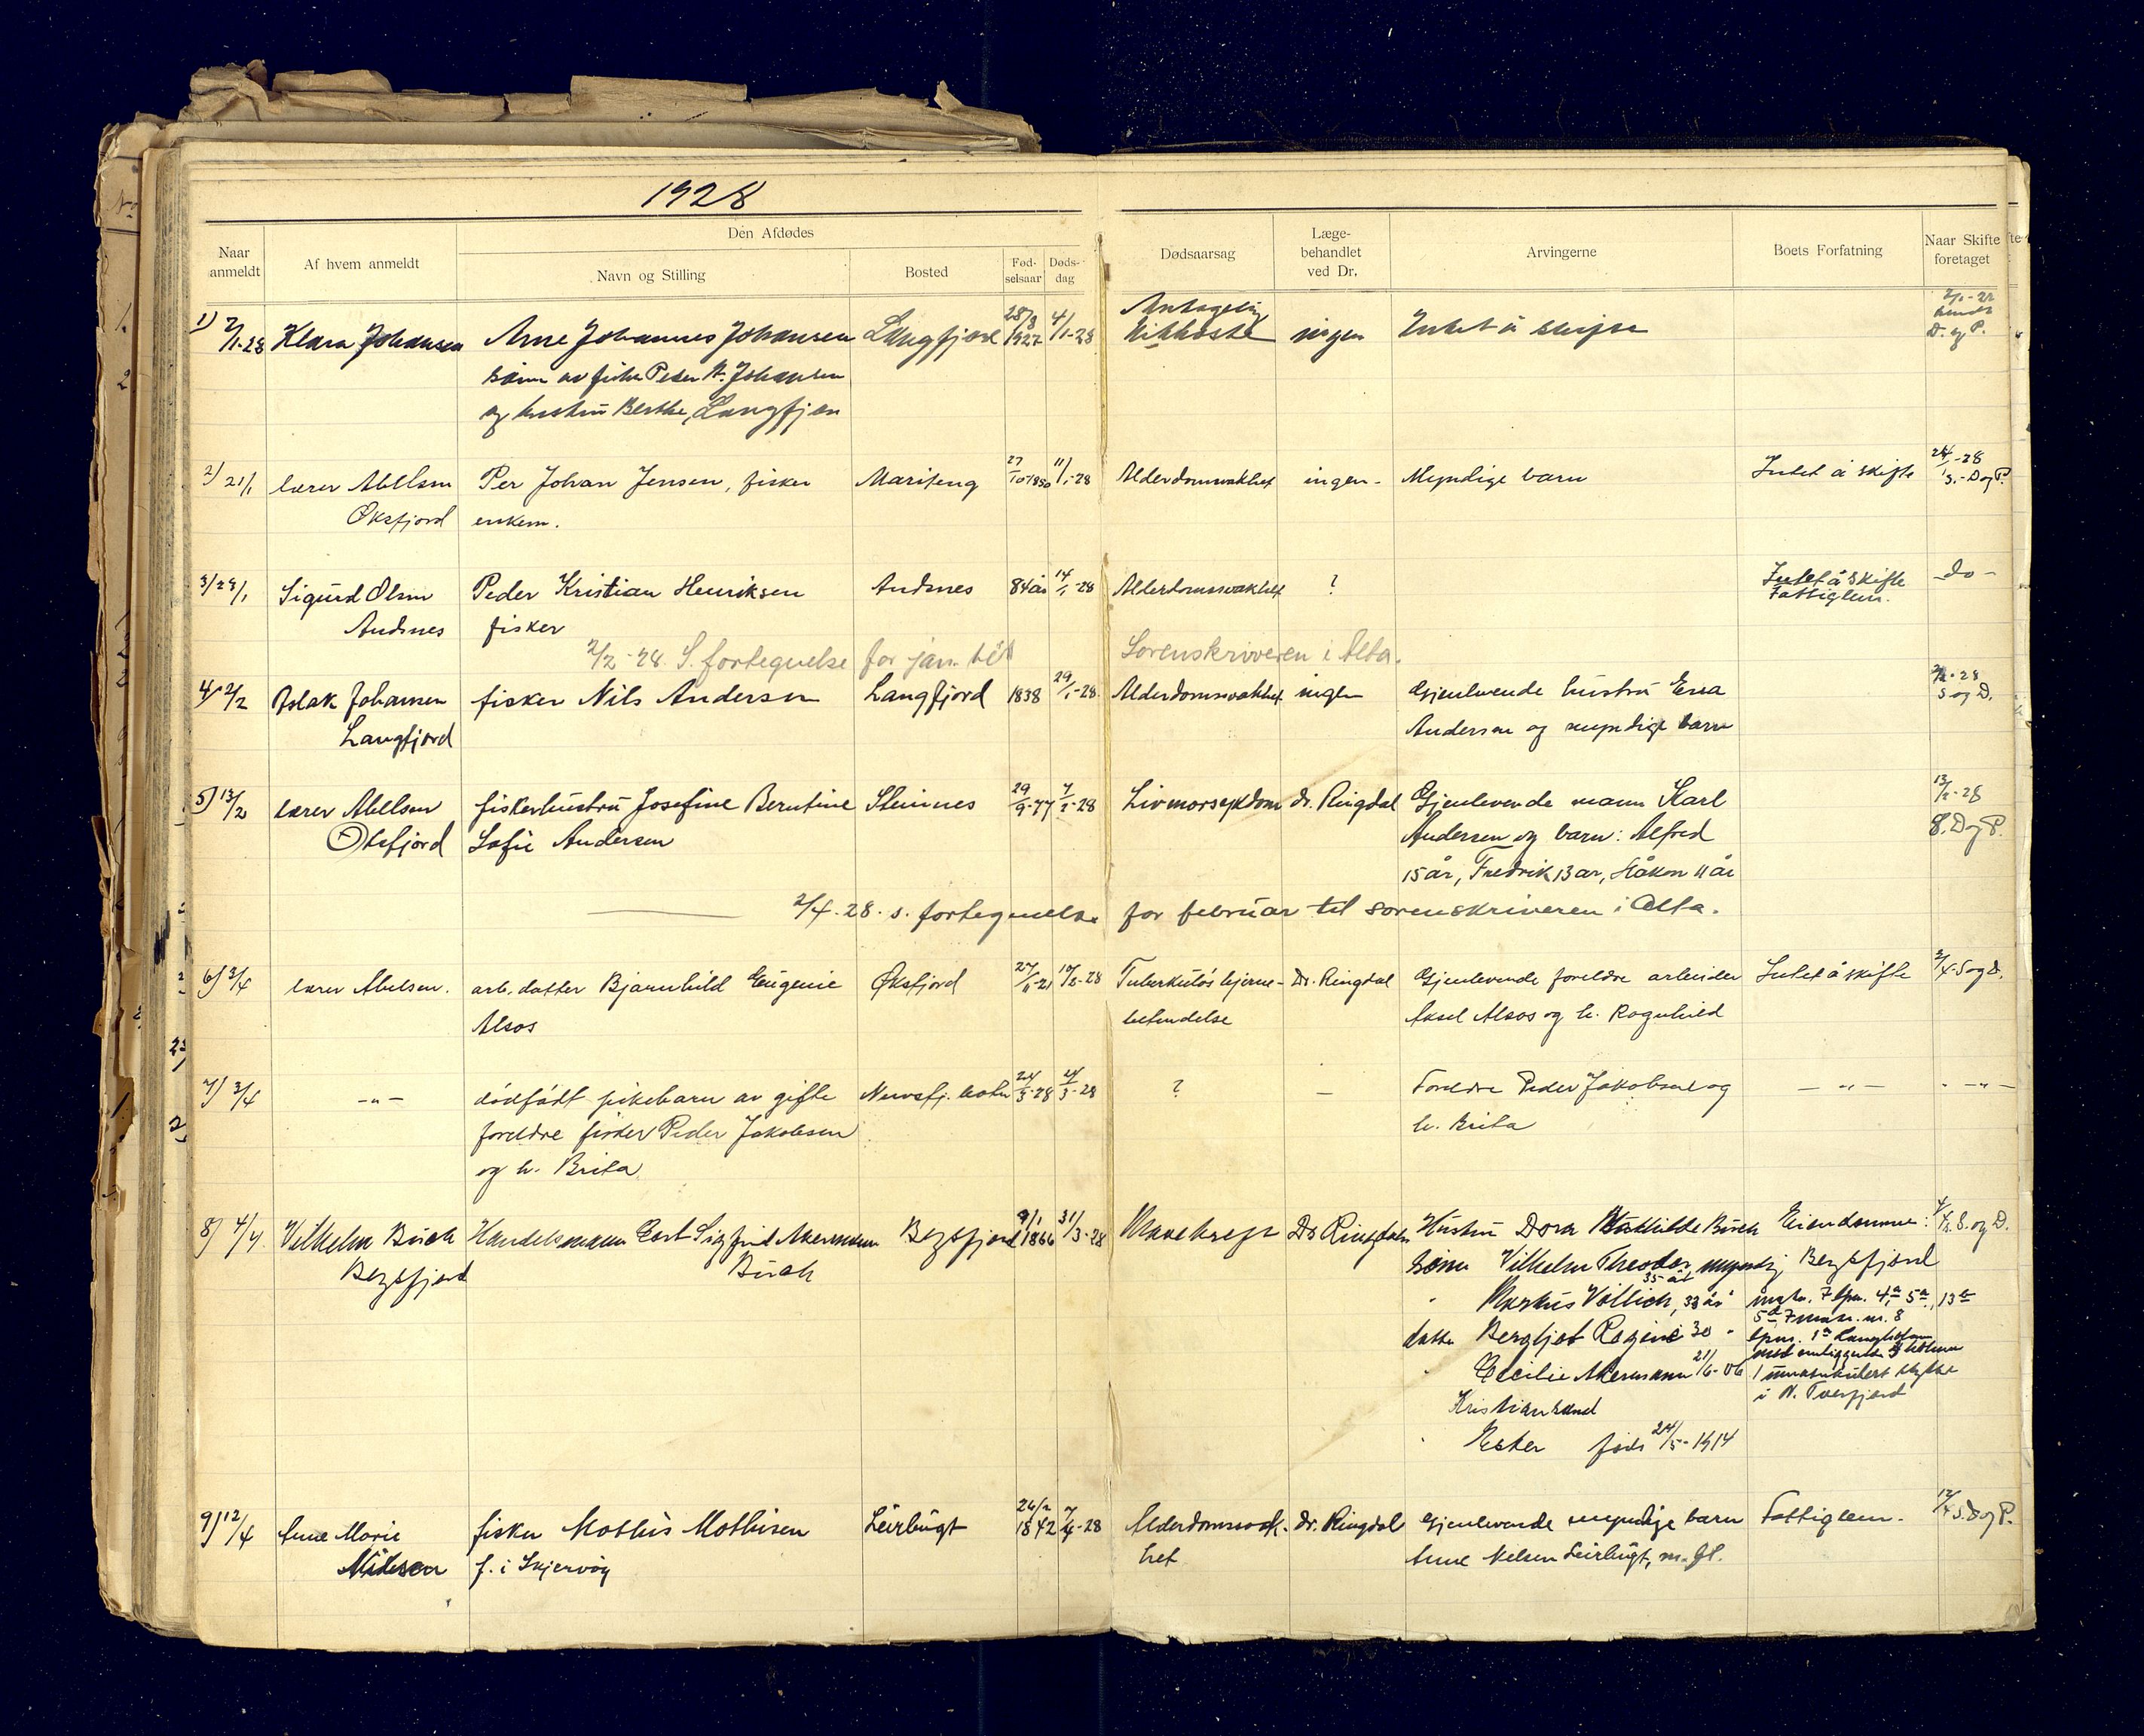 1928
Naar anmeldt
Af hvem anmeldt
Den Afdødes
Navn og Stilling
Bosted
Fød-selsaar
Døds-dag
Dødsaarsag
Læge-behandlet ved Dr.
Arvingerne
Boets Forfatning
Naar Skifte foretaget
1) 7/1-28 Klara Johansen Arne Johannes Johansen Langfjord 28/8 1927 4/1-28 Antagelig Kikhoste ingen Intet å skifte
sønn av fisker Peder N. Johansen
og hustru Berthe, Langfjord
D. og P.
2) 21/1 lærer Abelsen Per Johan Jensen, fisker Mariteng 27/10 1850 11/1-28 Alderdomsvakhet ingen - Myndige barn Intet å skifte 24/1-28
Øksfjord enkem. S.-D og P.
3) 23/1 Sigurd Olsen Peder Kristian Henriksen Andsnes 84 år 14/1-28 Alderdomssvakhet ? Intet å skifte - do -
Andsnes fisker Fattiglem.
2/2-28. S. fortegnelse for jan. til Sorenskriveren i Alta.
4) 2/2 Aslak Johansen fisker Nils Andersen Langfjord 1838 29/1-28 Alderdomssvakhet ingen Gjenlevende hustru Ensa 2/2-28
Langfjord Andersen og myndige barn S og D.
5) 13/2 lærer Abelsen fiskerhustru Josefine Berntine Steinnes 29/9-77 7/2-28 Livmorsykdom dr. Ringdal Gjenlevende mann Karl 13/2-28
Øksfjord Sofie Andersen Andersen og barn: Alfred S. D og P.
15 år, Fredrik 13 år, Håkon 11 år
2/4.28. s. fortegnelse for februar til sorenskriveren i Alta.
6) 3/4 lærer Abelsen. arb. datter Bjarnhild Eugenie Øksfjord 27/11-21 10/2-28 Tuberkuløs hjerne- Dr. Ringdal Gjenlevende foreldre arbeider Intet å skifte 3/4. S og D.
Alsos betendelse Aksel Alsos og h. Ragnhild
7) 3/4 - " - dødfødt pikebarn av gifte Nuvsfj. botn 24/3-28 24/3-28 ? - Foreldre Peder Jakobsen og - " - - " -
foreldre fisker Peder Jakobsen h. Brita
og h. Brita
8) 4/4 Vilhelm Buck Handelsmann Carl Sigfrid Akermann Bergsfjord 9/1 1866 31/3-28 Mavekreft Dr Ringdal Hustru Dora Mathilde Buck Eiendomme: 4/4 S. og D.
Bergsfjord Buck Sønn Vilhelm Theodor myndig Bergsfjord
35 år
" Markus Vollich, 33 år
datter Bergljot Regine 30 "
" Cecilie Akermann 21/6-06 1 umatrikulert stykke
Kristiansand i N. Tverfjord
" Ester født 24/5-1914
9) 12/4 Anne Marie fisker Mathis Mathisen Leirbugt 26/2 1842 7/4-28 Alderdomssvak- dr. Ringdal Gjenlevende myndige barn Fattiglem. 12/4 S. D og P.
Nilsen f. i Skjervøy het Anne Nilsen Leirbugt, m. fl.